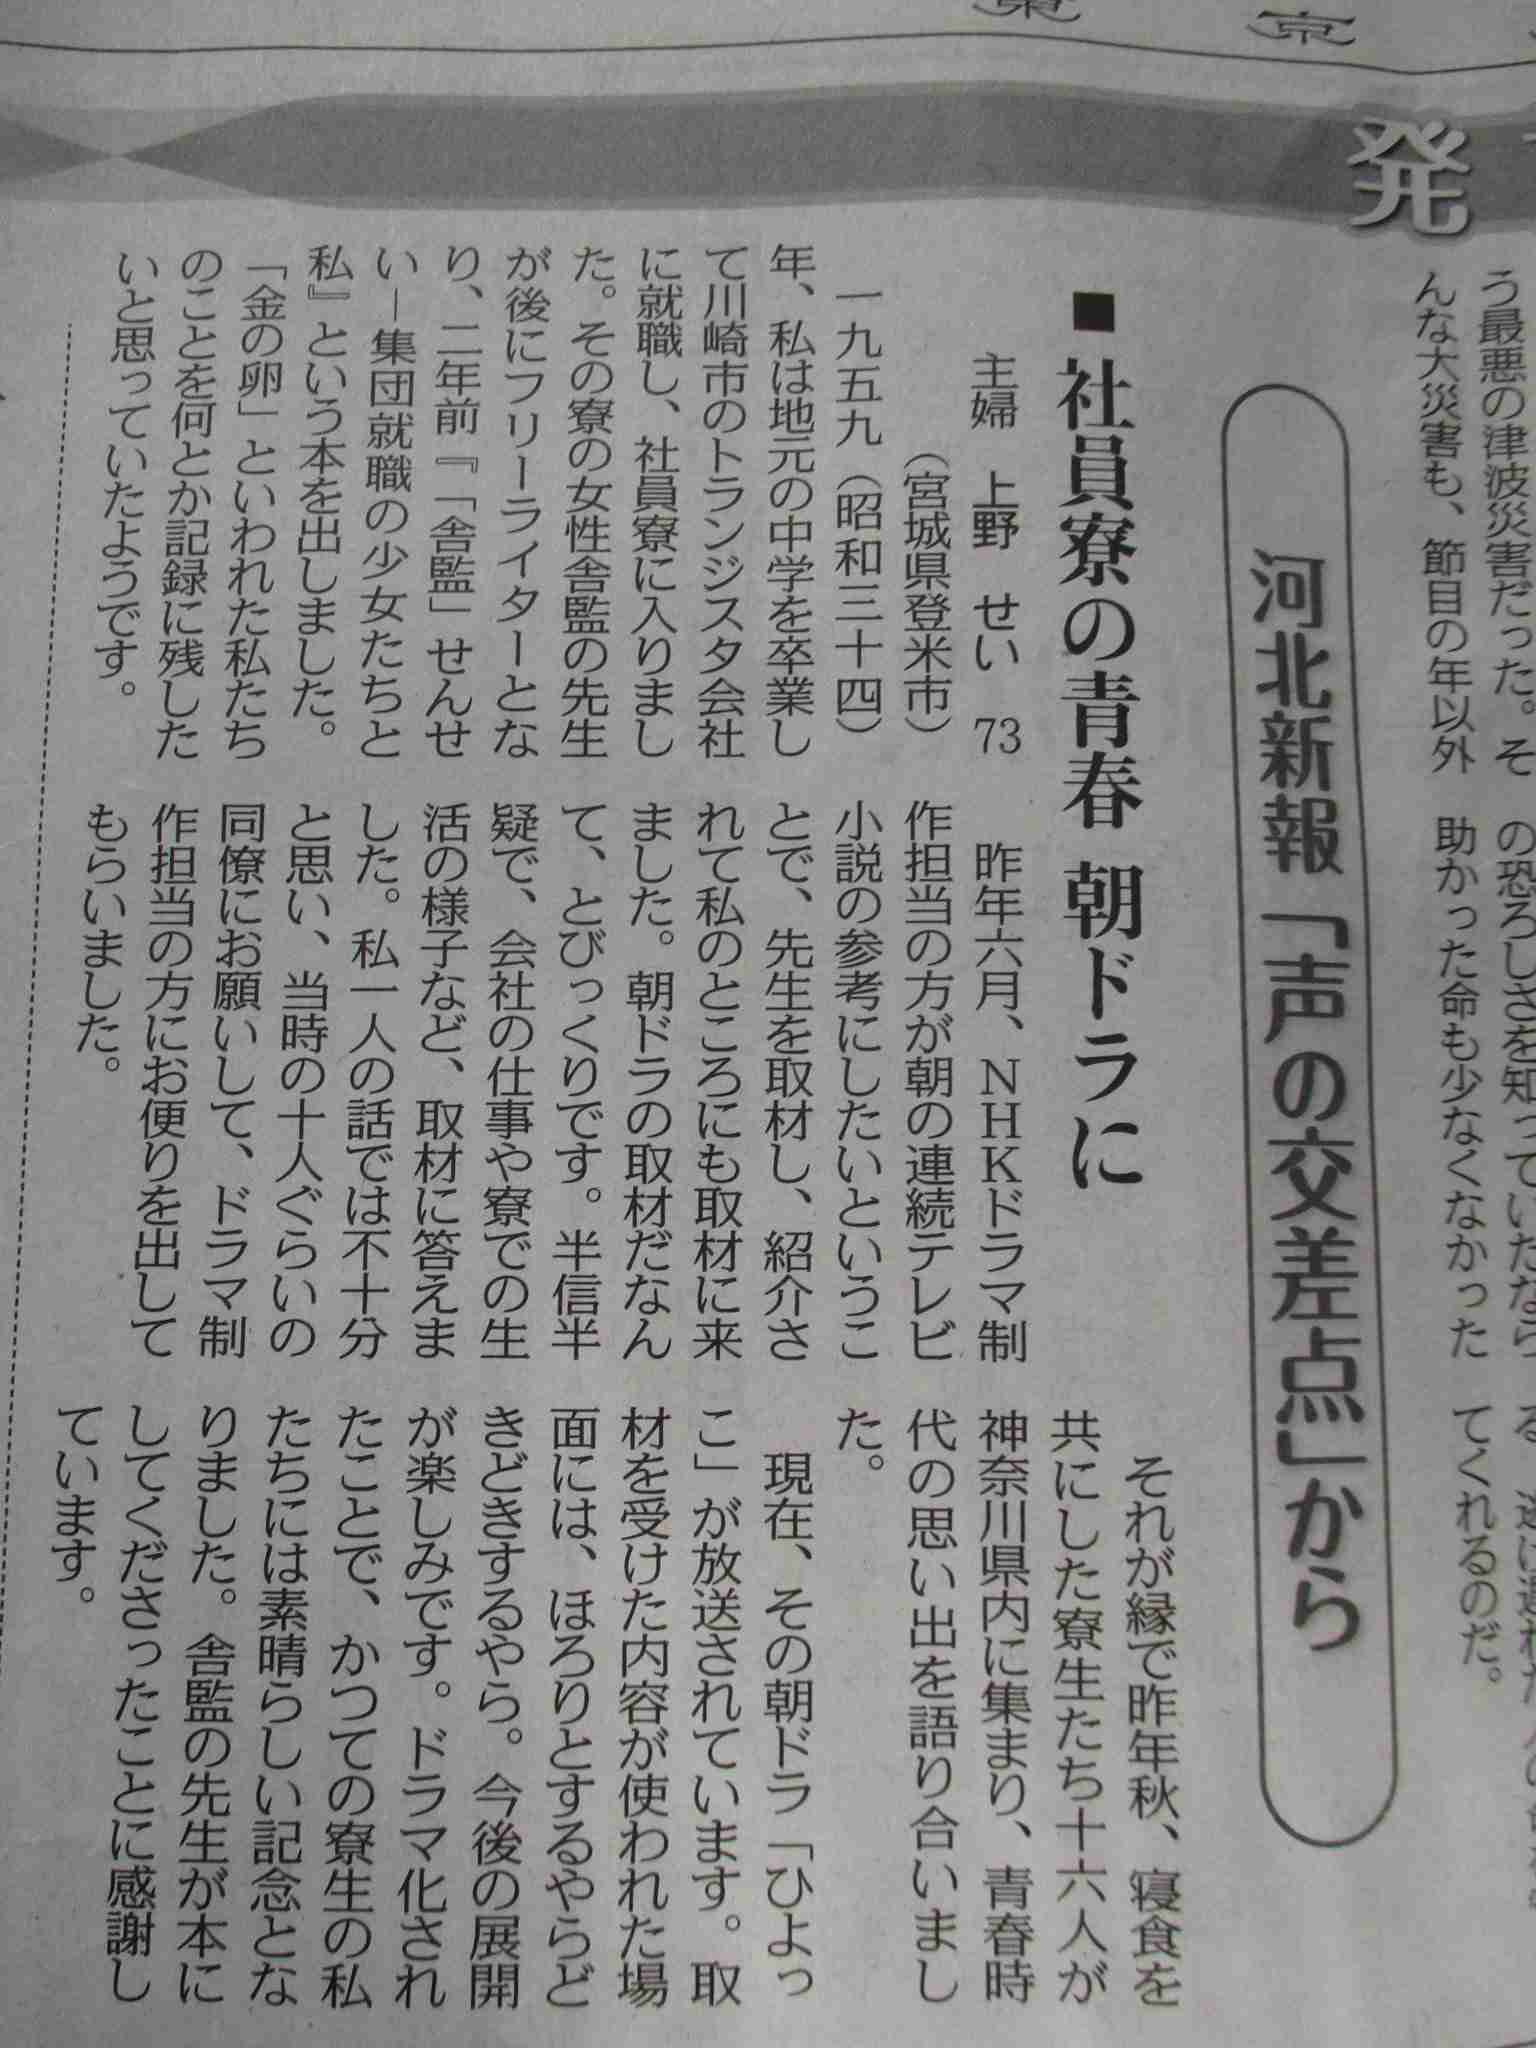 東京
発
う最悪の津波災害だった。そ
んな大災害も、節目の年以外
の恐ろしさを知っていたなら
助かった命も少なくなかった
てくれるのだ。
河北新報「声の交差点」から
■社員寮の青春 朝ドラに
主婦 上野 せい 73
(宮城県登米市)
一九五九(昭和三十四)
年、私は地元の中学を卒業し
て川崎市のトランジスタ会社
に就職し、社員寮に入りまし
た。その寮の女性舎監の先生
が後にフリーライターとな
り、二年前『「舎監」せんせ
い―集団就職の少女たちと
私』という本を出しました。
「金の卵」といわれた私たち
のことを何とか記録に残した
いと思っていたようです。
昨年六月、NHKドラマ制
作担当の方が朝の連続テレビ
小説の参考にしたいというこ
とで、先生を取材し、紹介さ
れて私のところにも取材に来
ました。朝ドラの取材だなん
て、とびっくりです。半信半
疑で、会社の仕事や寮での生
活の様子など、取材に答えま
した。私一人の話では不十分
と思い、当時の十人ぐらいの
同僚にお願いして、ドラマ制
作担当の方にお便りを出して
もらいました。
それが縁で昨年秋、寝食を
共にした寮生たち十六人が
神奈川県内に集まり、青春時
代の思い出を語り合いまし
た。
現在、その朝ドラ「ひよっ
こ」が放送されています。取
材を受けた内容が使われた場
面には、ほろりとするやらど
きどきするやら。今後の展開
が楽しみです。ドラマ化され
たことで、かつての寮生の私
たちには素晴らしい記念とな
りました。舎監の先生が本に
してくださったことに感謝し
ています。